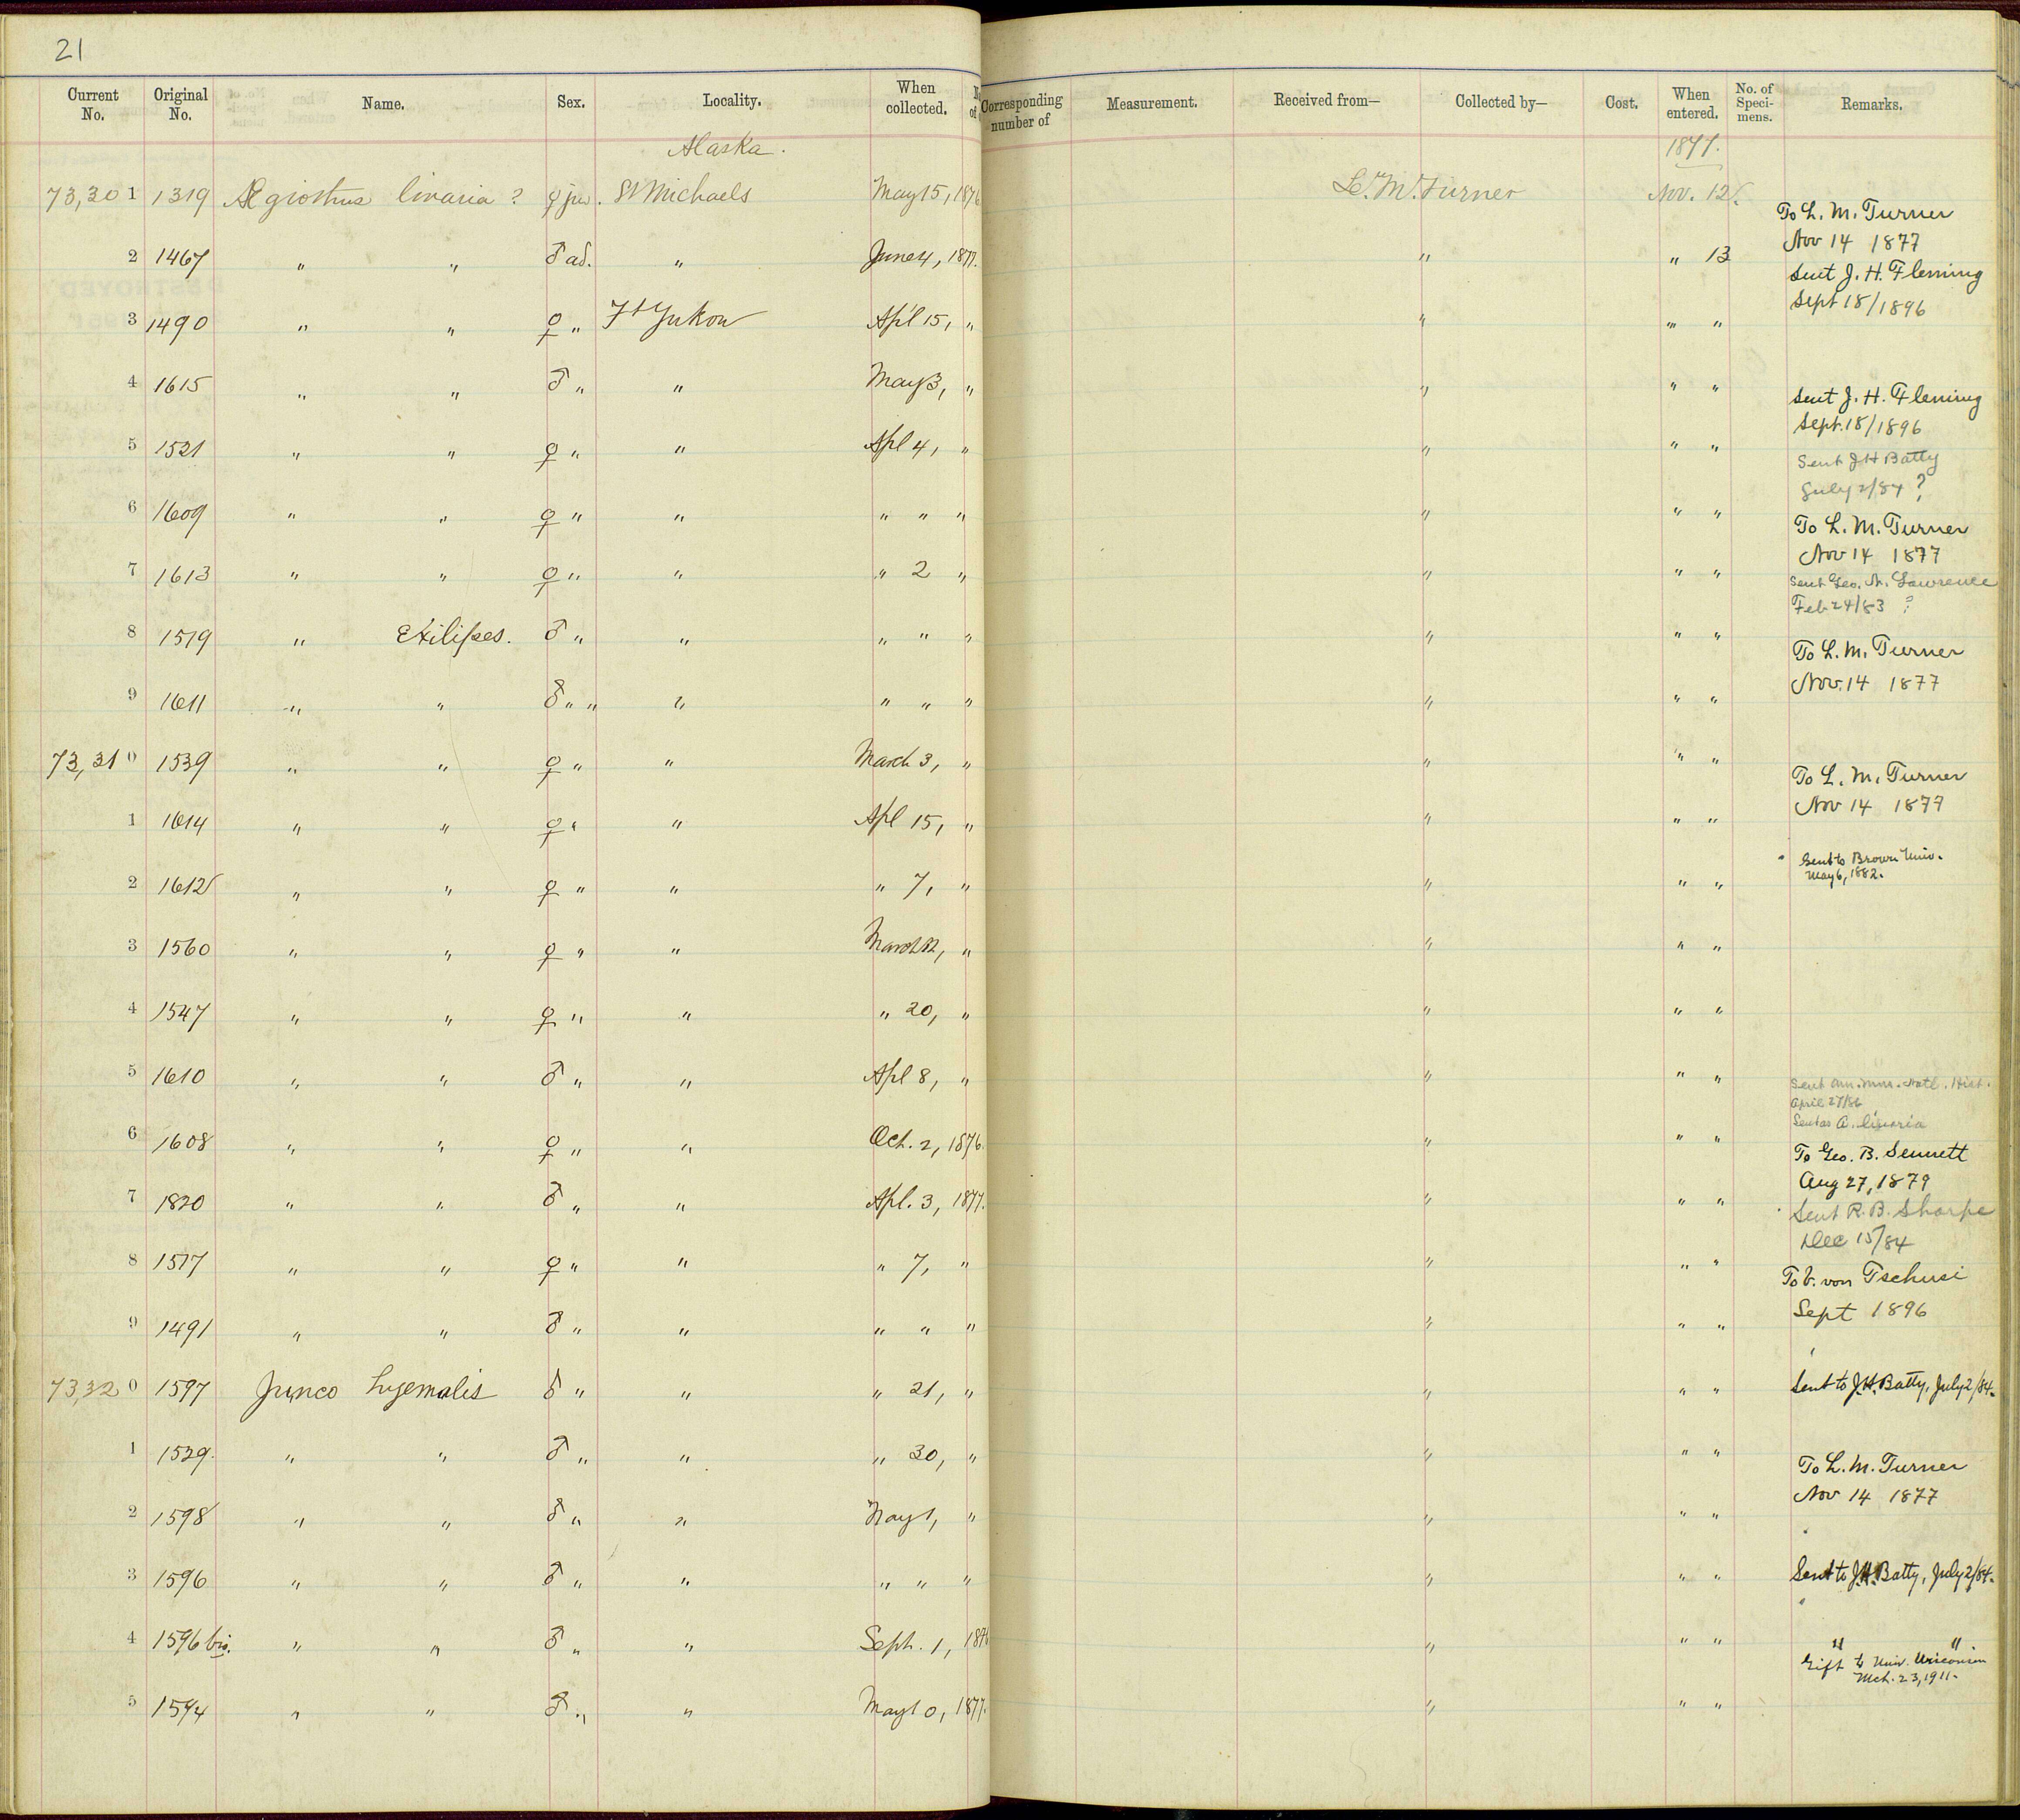 21
Current No. Original No. Name. Sex. Locality. When collected. Corresponding number of Measurement. Received from— Collected by— Cost. When entered. No. of Speci-mens. Remarks.
Alaska. 1877.
73,301 1319 Ægiothus linaria ? ♀ juv. St Michaels May 15, 1876 L. M. Turner Nov. 12.
To L. M. Turner
Nov 14 1877
2 1467 " " ♂ ad. " June 4, 1877. " " 13
Sent J. H. Fleming
Sept 18/1896
3 1490 " " ♀ " Ft Yukon Ap'l 15, " " " "
4 1615 " " ♂ " " May 3, " " " "
Sent J. H. Fleming
Sept. 18/1896
5 1521 " " ♀ " " Apl 4, " " " "
Sent J H Batty
July 2/84 ?
6 1609 " " ♀ " " " " " " " "
To L. M. Turner
Nov 14 1877
7 1613 " " ♀ " " " 2 " " " "
Sent Geo. N. Lawrence
Feb 24/83 ?
8 1519 " Exilipes. ♂ " " " " " " " "
To L. M. Turner
Nov. 14 1877
9 1611 " " ♂ " " " " " " " " "
73,310 1539 " " ♀ " " March 3, " " " "
To L. M. Turner
Nov 14 1877
1 1614 " " ♀ " " Apl 15, " " " "
2 1612 " " ♀ " " " 7, " " " "
Sent to Brown Univ.
May 6, 1882.
3 1560 " " ♀ " " March , " " " "
4 1547 " " ♀ " " " 20, " " " "
5 1610 " " ♂ " " Apl 8, " " " "
Sent Am. Mus. Natl. Hist.
April 27/86
Sent as A. linaria
6 1608 " " ♀ " " Oct. 2, 1876. " " "
To Geo. B. Sennett
Aug 27, 1879
7 1820 " " ♂ " " Apl. 3, 1877. " " "
Sent R. B. Sharpe
Dec 15/84
8 1517 " " ♀ " " " 7, " " " "
To V. von Tschusi
Sept 1896
9 1491 " " ♂ " " " " " " " "
73,320 1597 Junco hyemalis ♂ " " " 21, " " " " Sent to J.H. Batty, July 2/84.
1 1529. " " ♂ " " " 30, " " " "
To L. M. Turner
Nov 14 1877
2 1598 " " ♂ " " May 1, " " " "
3 1596 " " ♂ " " " " " " " " Sent to J.H. Batty, July 2/84.
4 1596 bis. " " ♂ " " Sept. 1, 1876 " " " " "
Gift to Univ. Wisconsin
Mch. 23, 1911.
5 1594 " " ♂ " " May 10, 1877. " " "